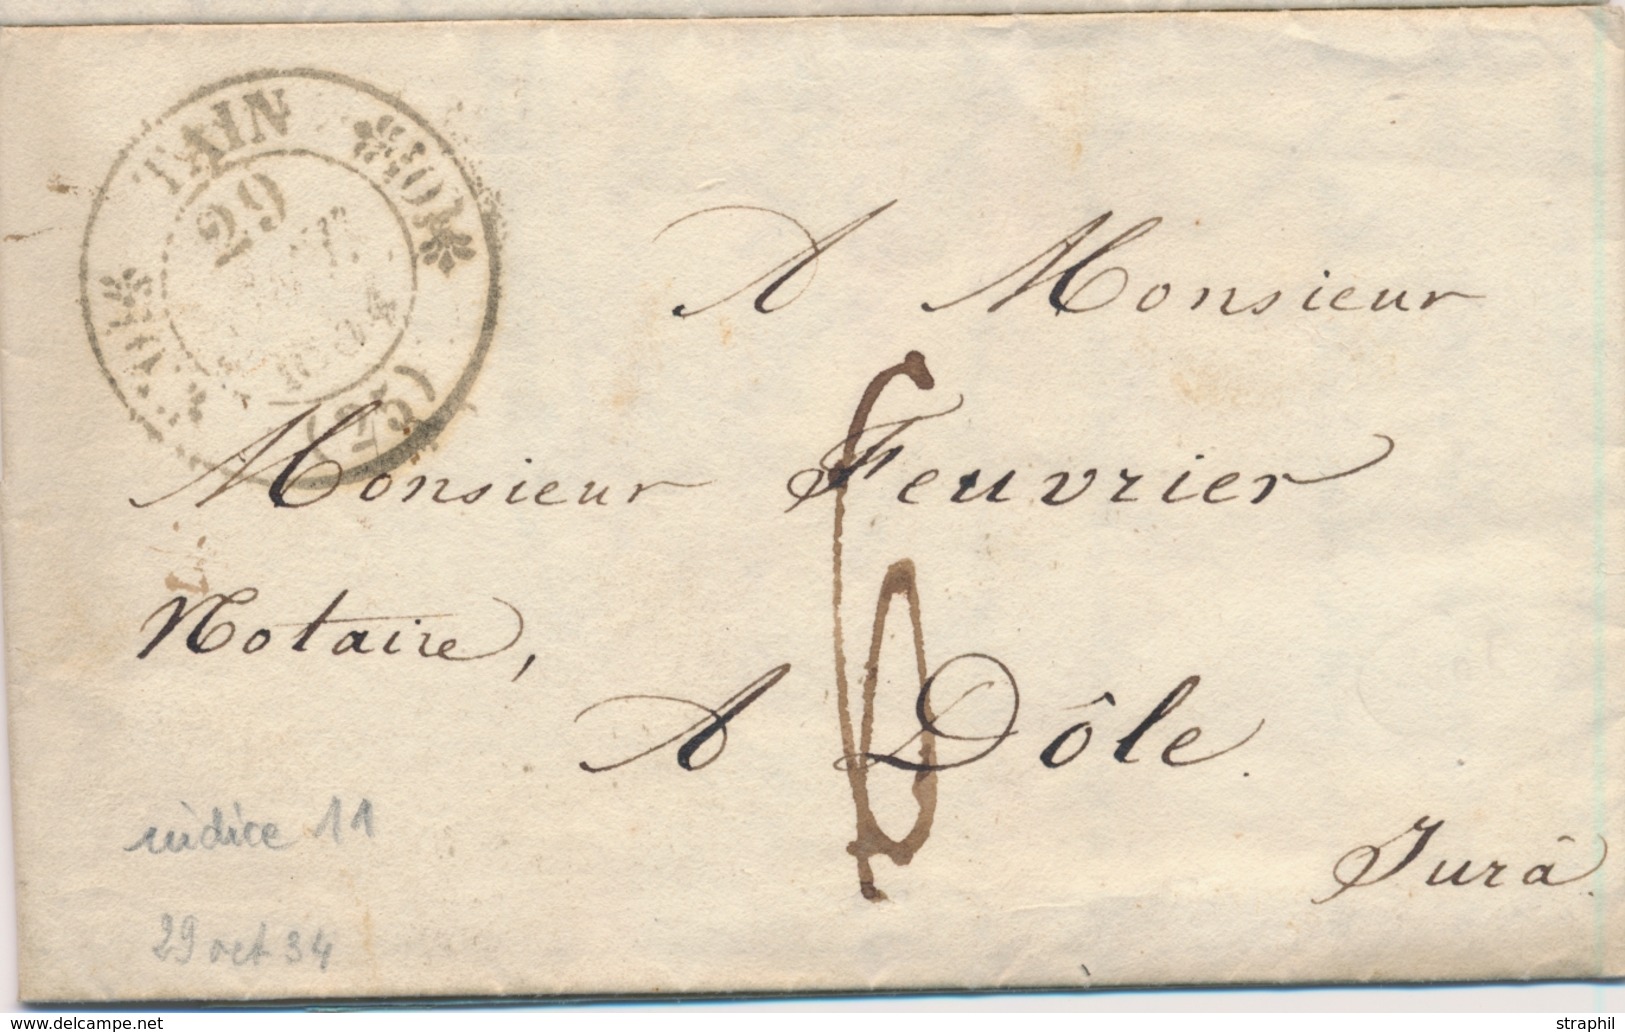 TAIN
(25)
29
OCT.
1834
A Monsieur
Monsieur Feuvrier
Notaire,
A Dôle.
Jurâ.
6
indice 11
29 oct 34
delcampe.net
straphil